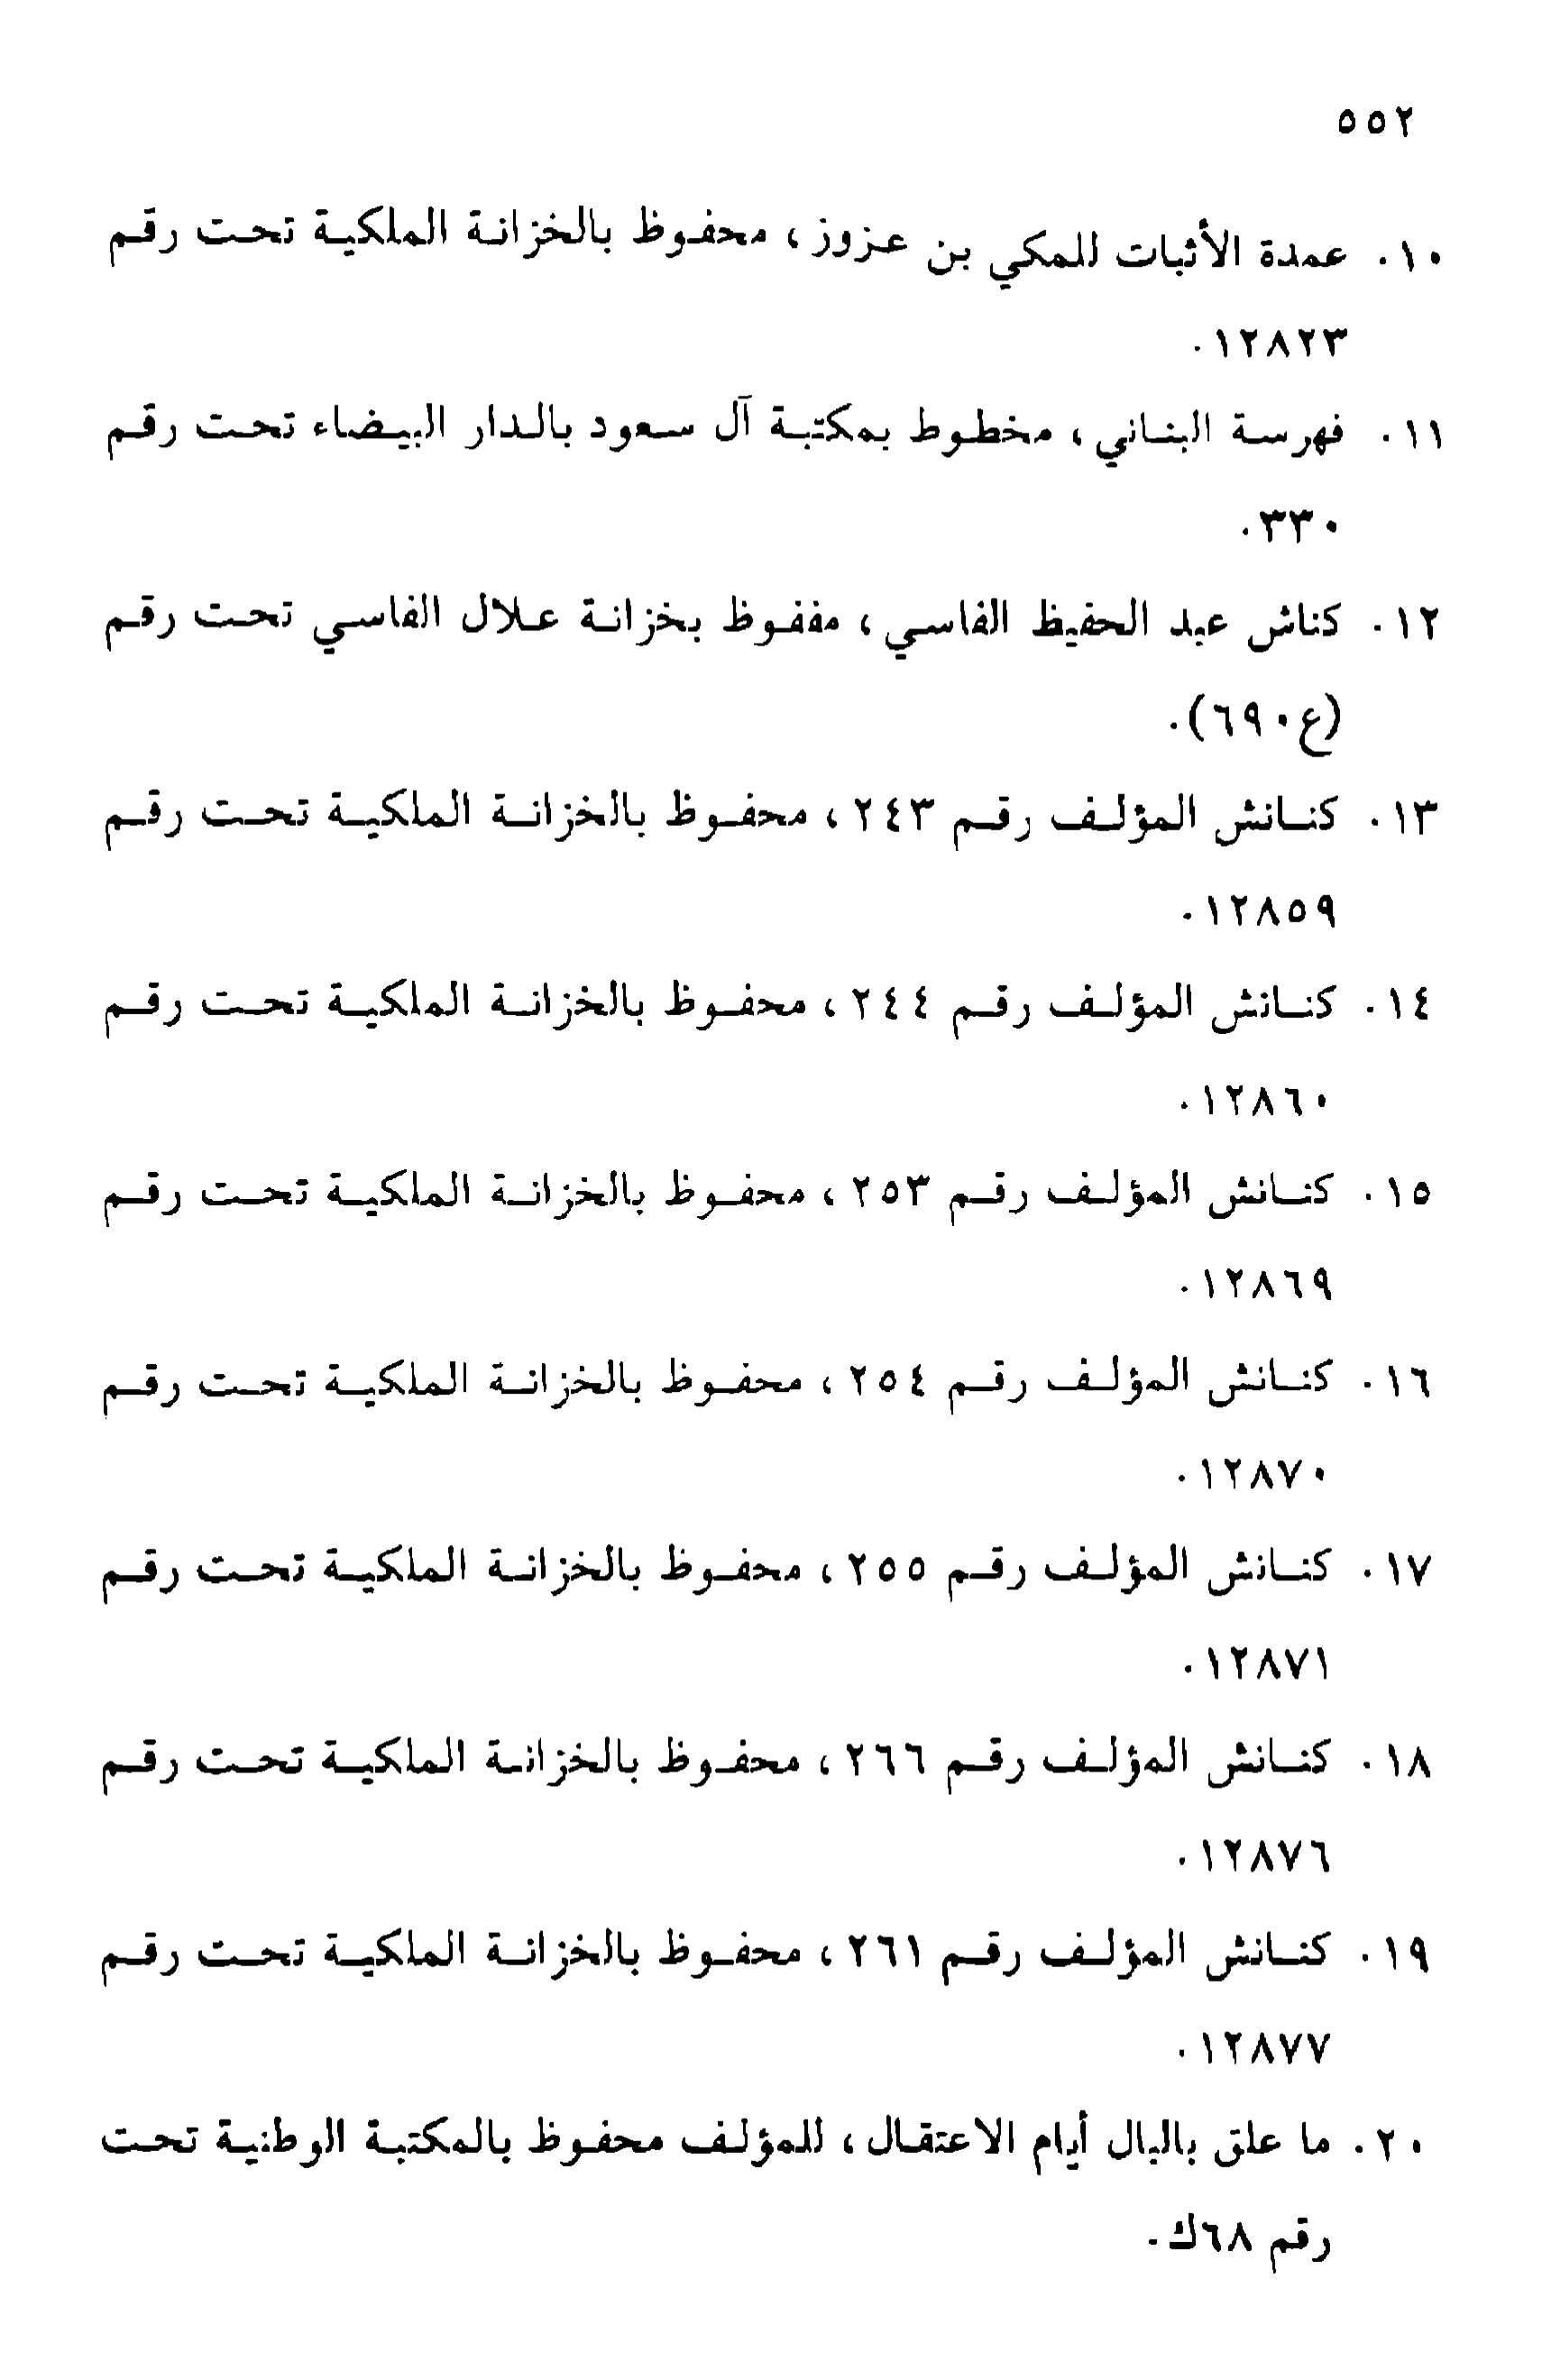 ٥٥٢
١٠. عمدة الأثبات للمكي بن عزوز، محفوظ بالخزانة الملكية تحت رقم
١٢٨٢٣.
١١. فهرسة البناني، مخطوط بمكتبة آل سعود بالدار البيضاء تحت رقم
٣٣٠.
١٢. كناش عبد الحفيظ الفاسي، مففوظ بخزانة علال الفاسي تحت رقم
(ع٦٩٠).
١٣. كنانش المؤلف رقم ٢٤٣، محفوظ بالخزانة الملكية تحت رقم
١٢٨٥٩.
١٤. كنانش المؤلف رقم ٢٤٤، محفوظ بالخزانة الملكية تحت رقم
١٢٨٦٠.
١٥. كنانش المؤلف رقم ٢٥٣، محفوظ بالخزانة الملكية تحت رقم
١٢٨٦٩.
١٦. كنانش المؤلف رقم ٢٥٤، محفوظ بالخزانة الملكية تحت رقم
١٢٨٧٠.
١٧. كنانش المؤلف رقم ٢٥٥، محفوظ بالخزانة الملكية تحت رقم
١٢٨٧١.
١٨. كنانش المؤلف رقم ٢٦٦، محفوظ بالخزانة الملكية تحت رقم
١٢٨٧٦.
١٩. كنانش المؤلف رقم ٢٦١، محفوظ بالخزانة الملكية تحت رقم
١٢٨٧٧.
٢٠. ما علق بالبال أيام الاعتقال، للمؤلف محفوظ بالمكتبة الوطنية تحت
رقم ٦٨ك.